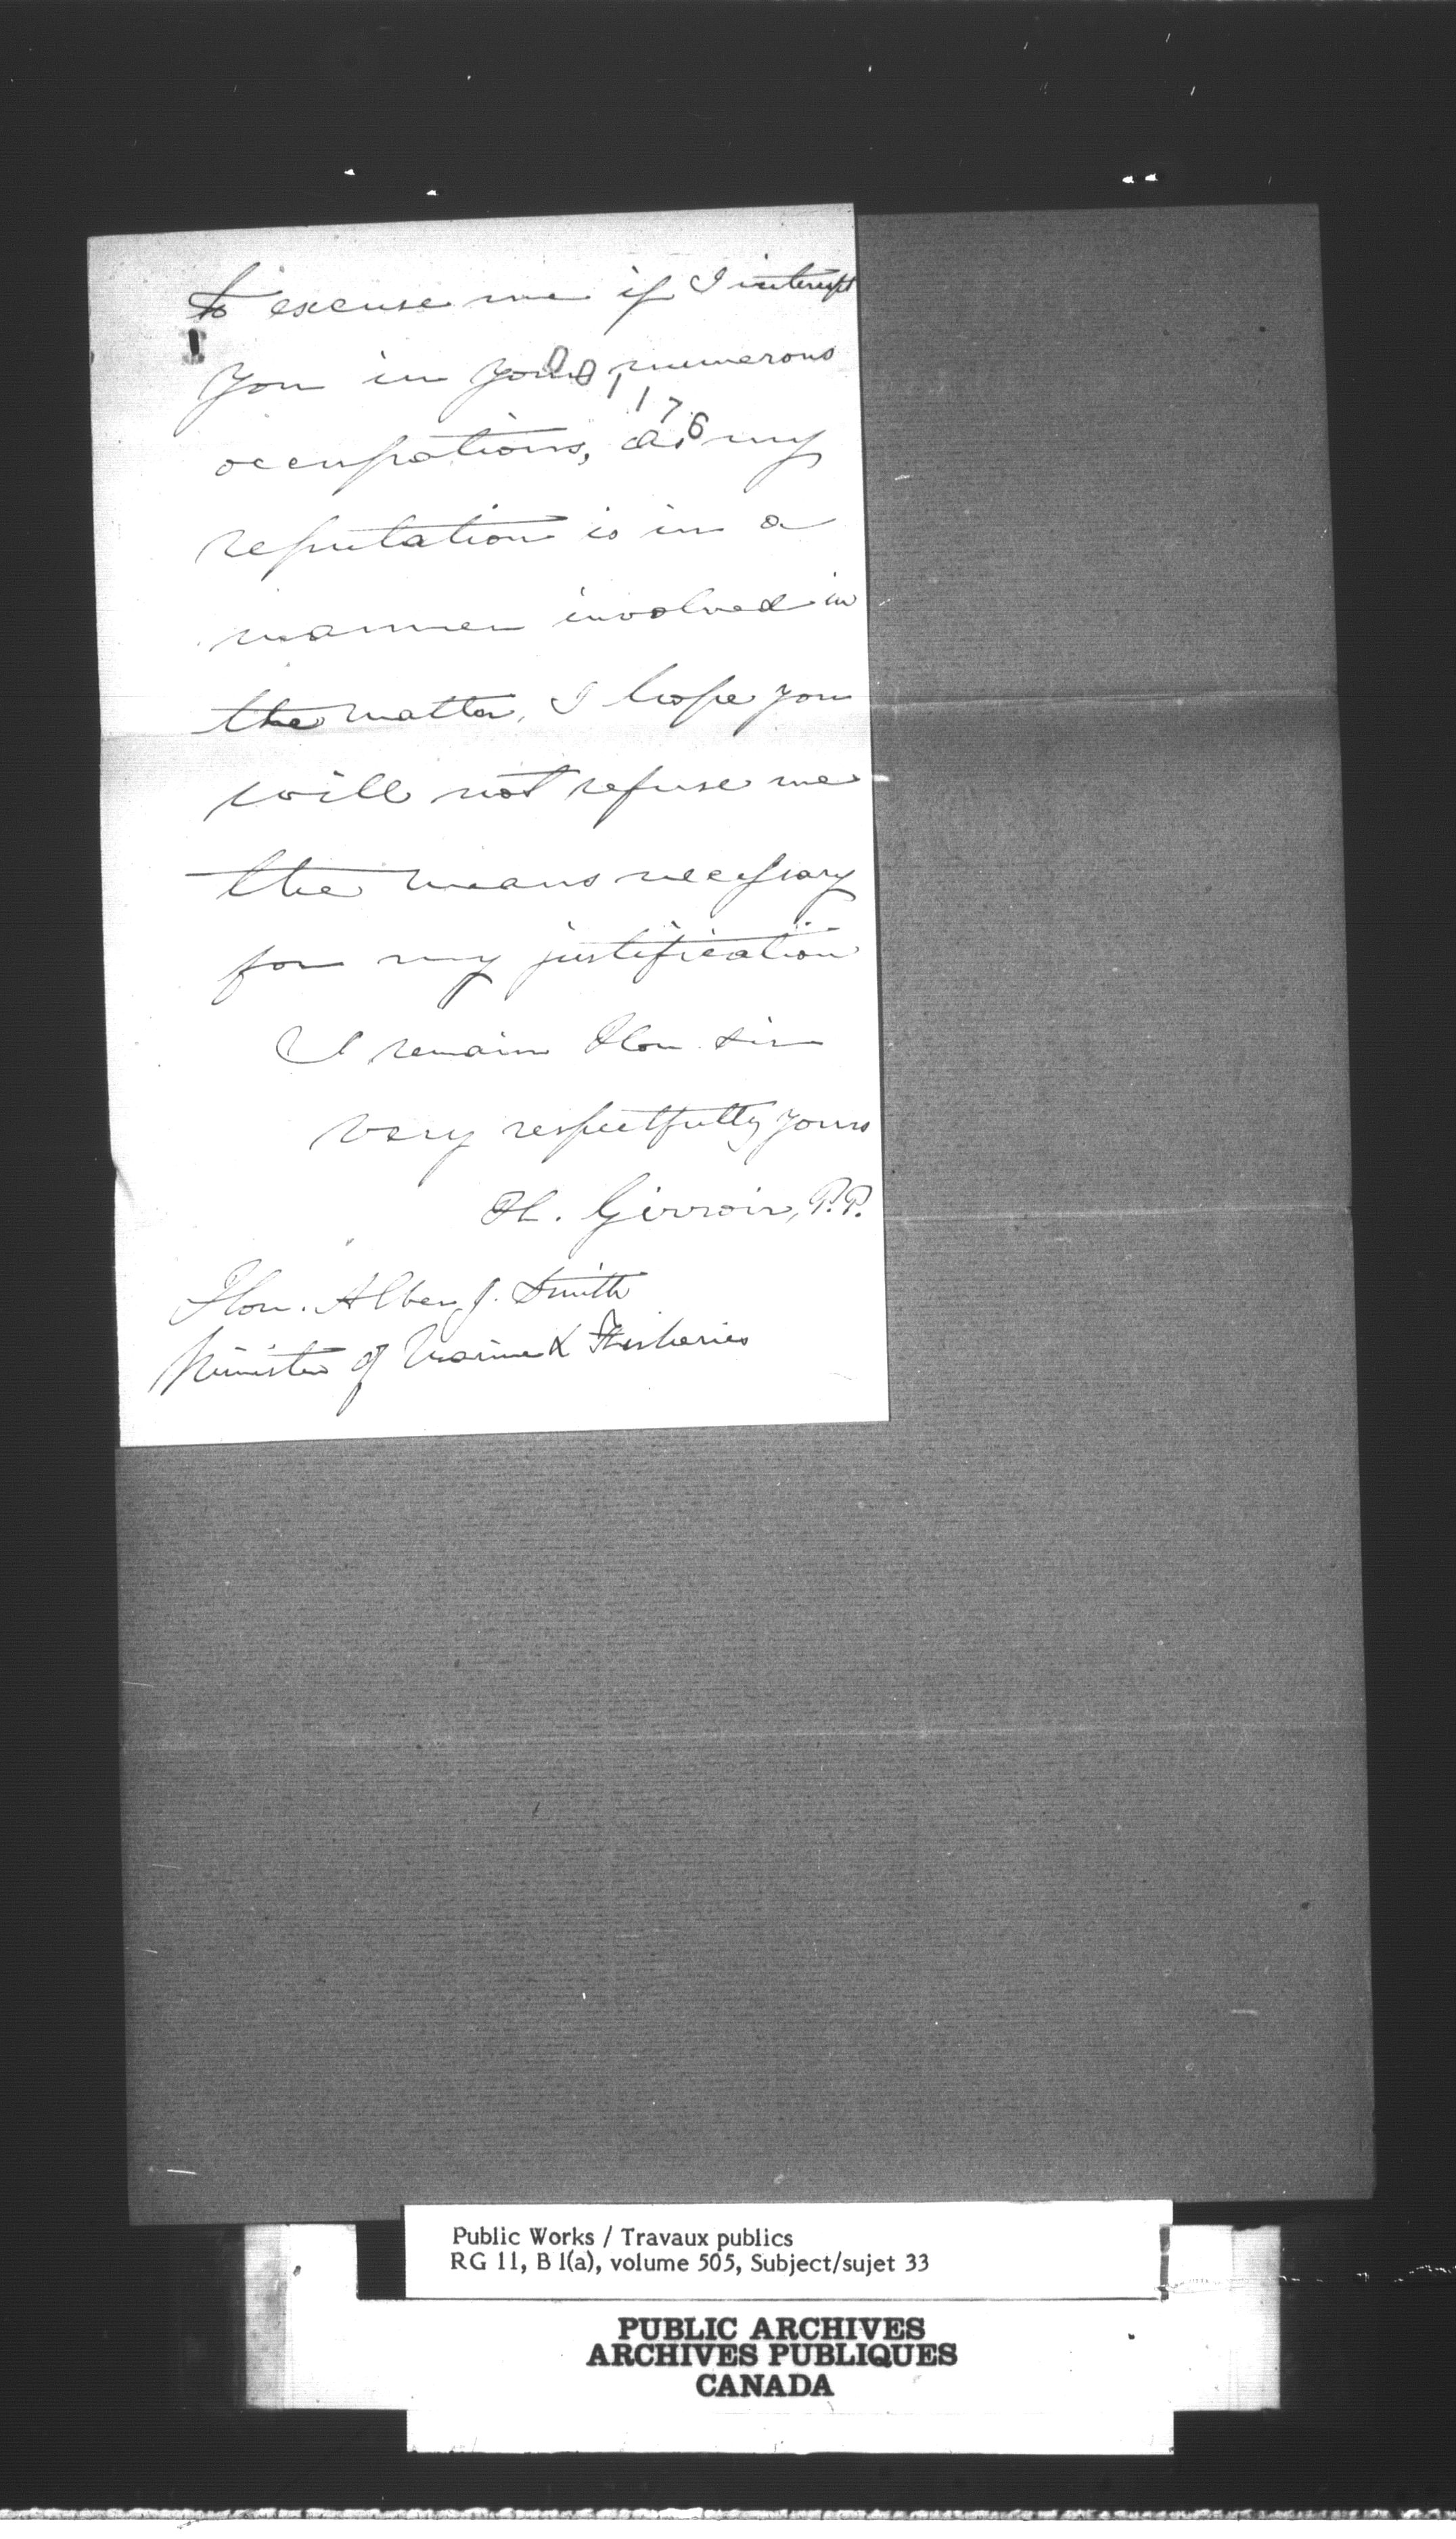 to excuse me if I interrupt
you in your numerous
001176
occupations, as my
reputation is in a
manner involved in
the matter, I hope you
will not refuse me
the means necessary
for my justification
I remain Hon. Sir
very respectfully yours
H. Girroir, P.P.
Hon. Alber J. Smith
Minister of Marine & Fisheries
Public Works / Travaux publics
RG 11, B 1(a), volume 505, Subject/sujet 33
PUBLIC ARCHIVES
ARCHIVES PUBLIQUES
CANADA